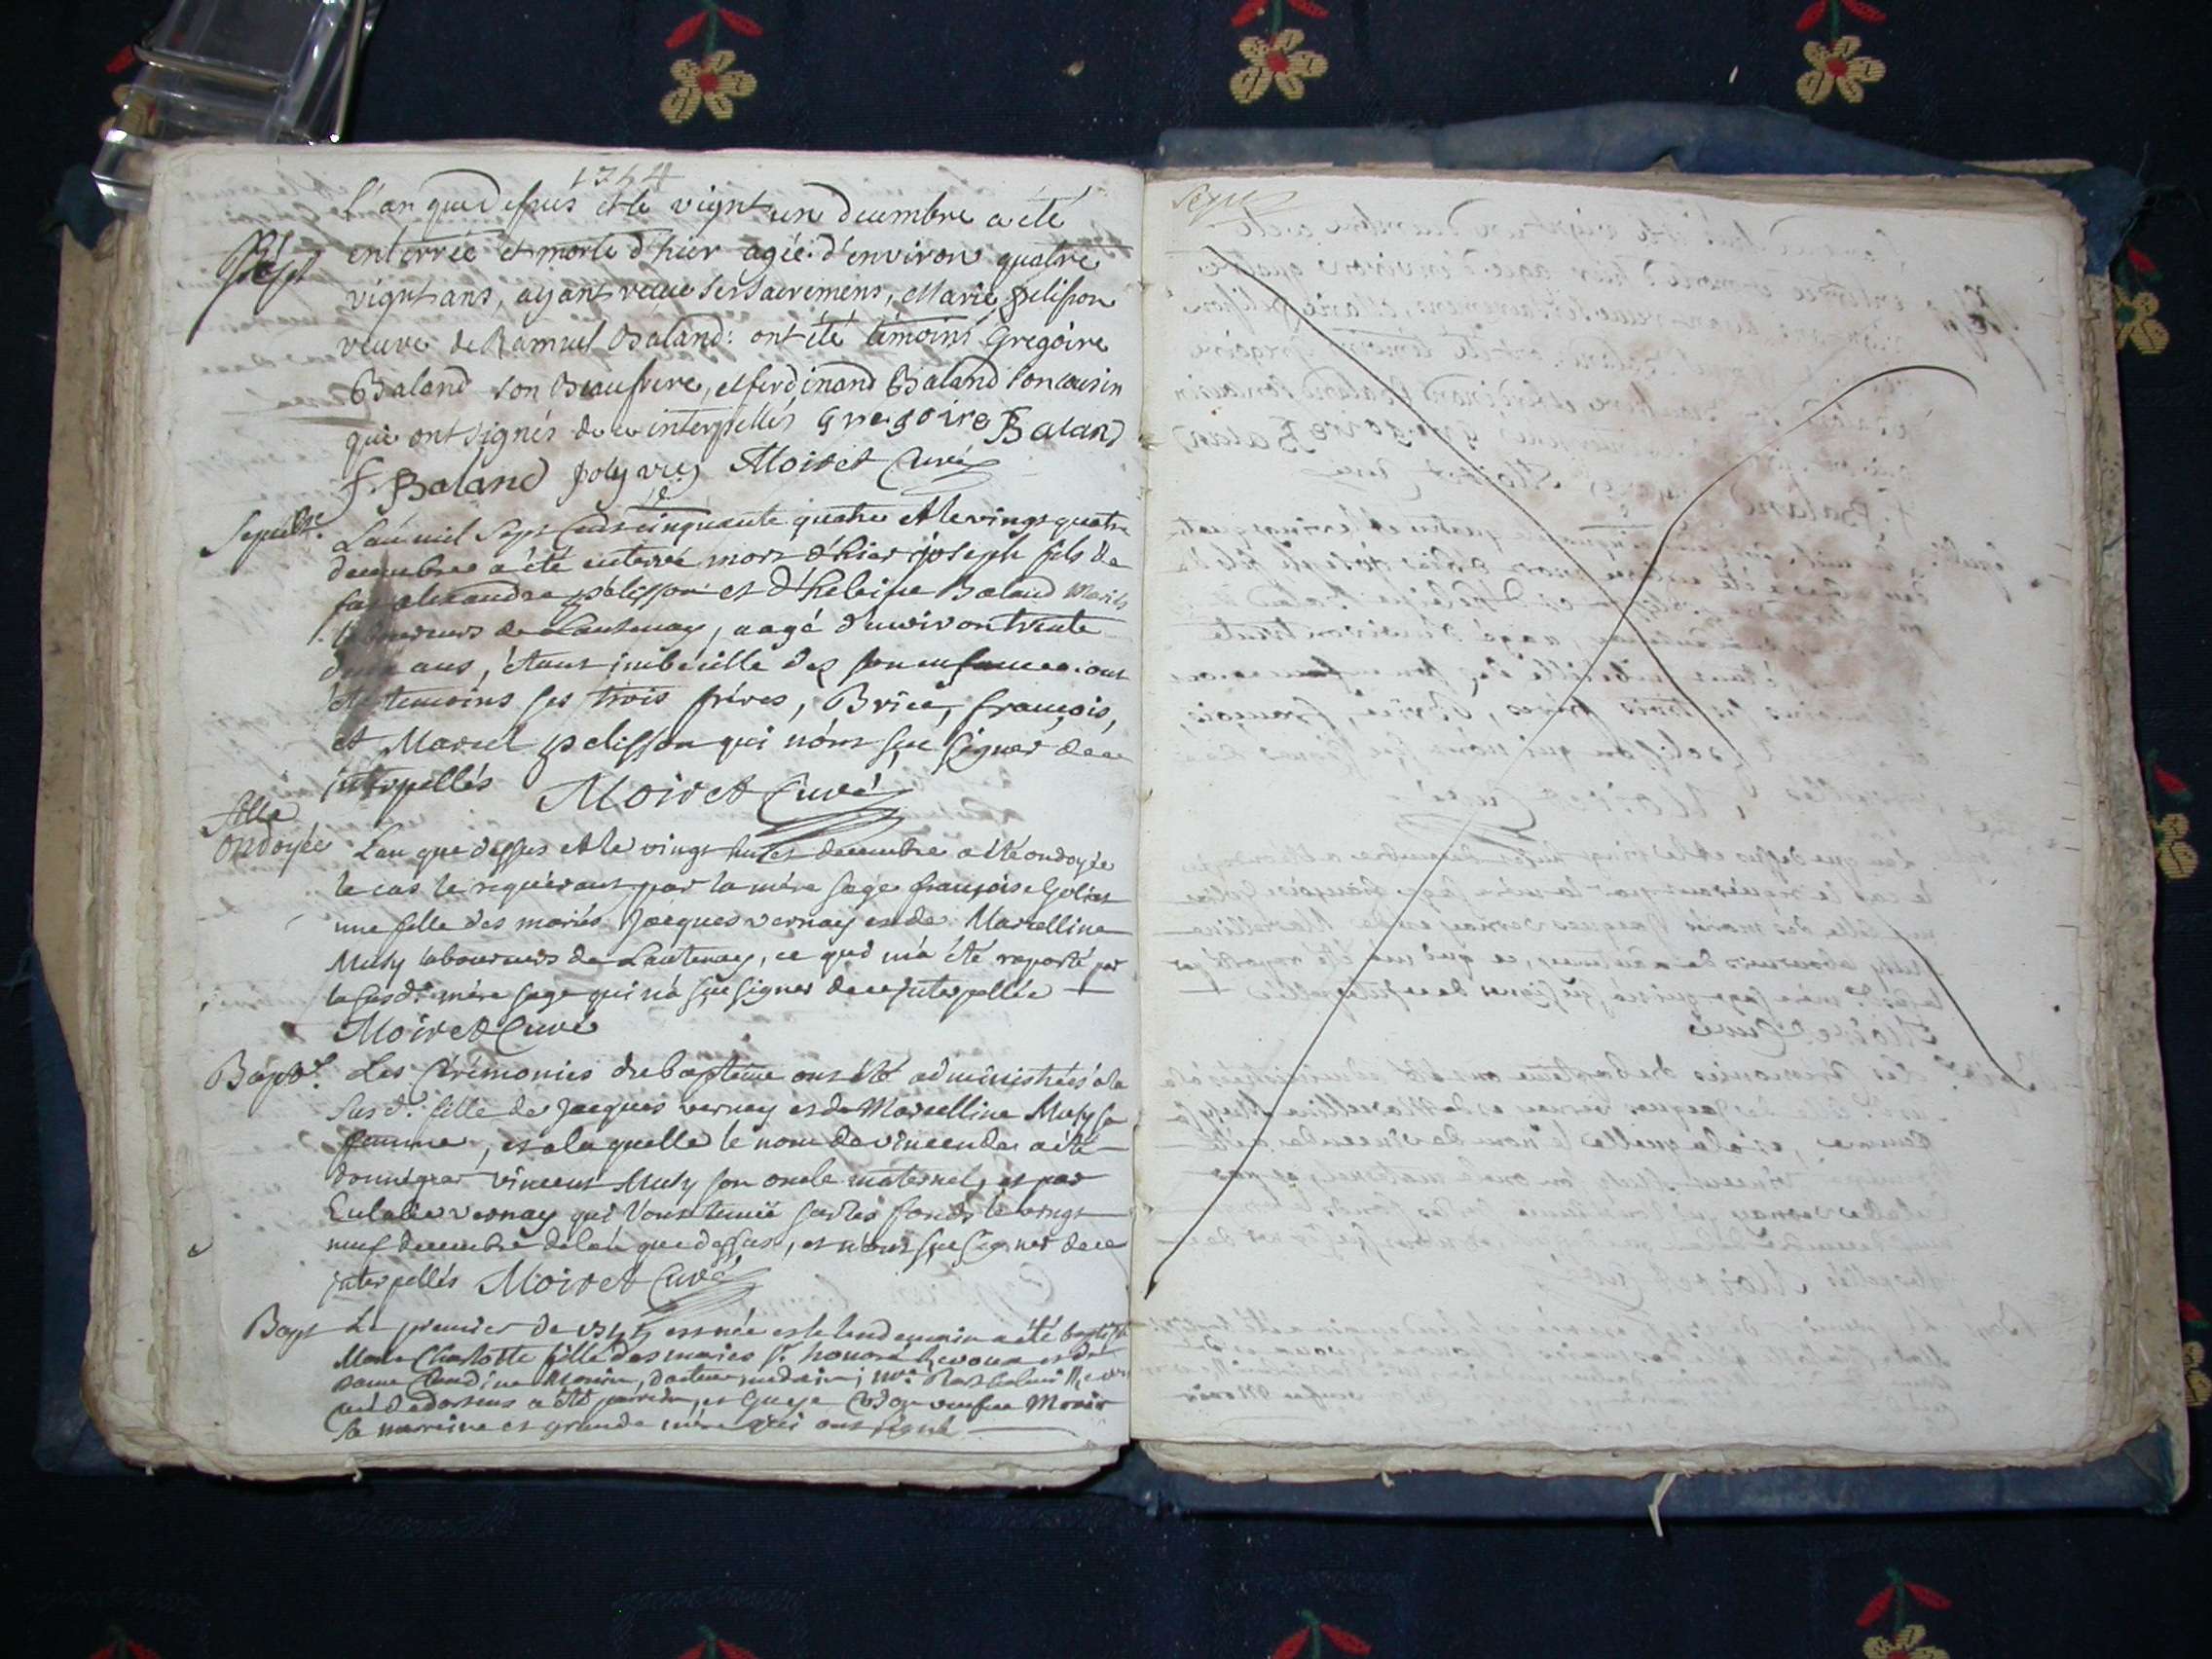 1754
L'an que dessus et le vignt un decembre a été
Sépt enterrée et morte d'hier agée d'environ quatre
vignt ans, ayant reçue ses sacremens, Marie pelisson
veuve de Samuel Baland: ont été témoins Gregoire
Baland son Beaufrere, et ferdinand Baland son cousin
qui ont signés de ce interpellés Gregoire Baland
f. Baland Moiret Curé
Sepult.e L'an mil sept cens cinquante quatre et le vingt quatre
decembre a été enterré mort d'hier joseph fils de
feu alexandre pélisson et d'heleine Baland mariés
laboureurs de Lantenay, aagé d'environ trente
deux ans, étant imbécille dez son enfance: ont
été temoins ses trois fréres, Brice, françois,
et Marcel pelisson qui n'ont sçu signer de ce
interpellés Moiret Curé
fille
ondoyée L'an que dessus et le vingt huit decembre a été ondoyée
le cas le requérant par la mére sage françoise Golias
une fille des mariés Jacques vernay et de Marcelline
Muty laboureurs de Lantenay, ce qui m'a été raporté par
la susd.e mére sage qui n'a sçu signer de ce interpellée
Moiret Curé
Bapt.e Les Cérémonies du baptéme ont été administrées a la
susd.e fille de Jacques vernay et de Marcelline Muty sa
femme, et a laquelle le nom de vincende a été
donné par vincent Muty son oncle maternel, et par
Eulalie vernay qui l'ont tenüe sur les fonds le vingt
neuf decembre de l'an que dessus, et n'ont sçu signer de ce
interpellés Moiret Curé
Bapt Le premier de 1755 est née et le lendemain a été baptisée
Marie Charlotte fille des mariés Sr. honoré et de
dame Claudine Morin, docteur medecin;
a été parrein, et veufve Morin
sa marreine et grande mére qui ont signé
Sept